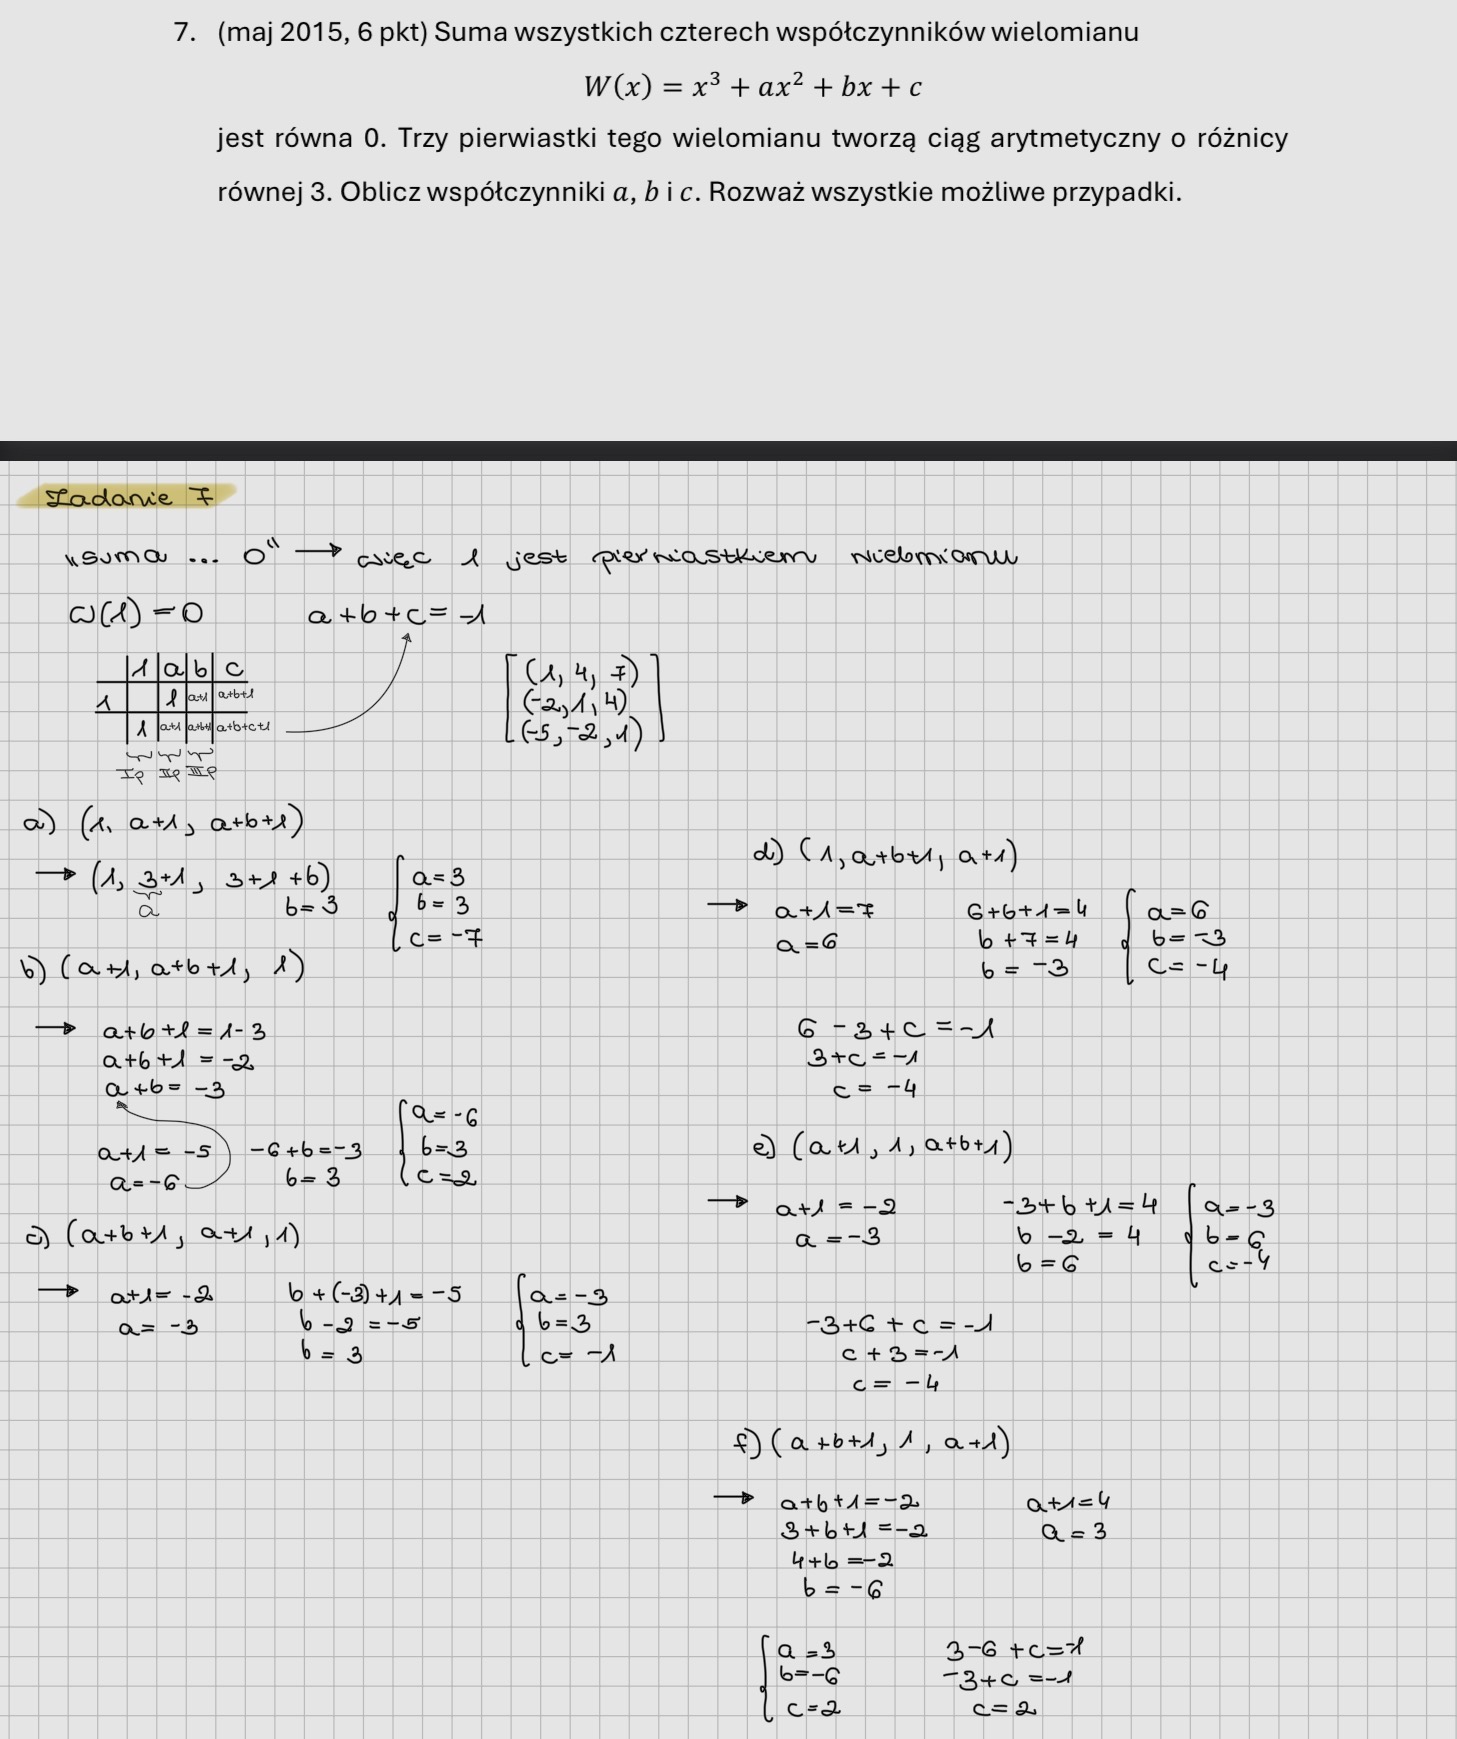 7. (maj 2015, 6 pkt) Suma wszystkich czterech współczynników wielomianu
W(x) = x³ + ax² + bx + c
jest równa 0. Trzy pierwiastki tego wielomianu tworzą ciąg arytmetyczny o różnicy
równej 3. Oblicz współczynniki a, b i c. Rozważ wszystkie możliwe przypadki.
Zadanie 7
„suma ... 0“ → więc 1 jest pierwiastkiem wielomianu
W(1) = 0 a+b+c = -1
1 a b c
1 1 a+1 a+b+1
1 a+1 a+b+1 a+b+c+1
Ip IIp IIIp
(1, 4, 7)
(-2, 1, 4)
(-5, -2, 1)
a) (1, a+1, a+b+1)
→ (1, 3+1, 3+1+b)
a b = 3
a = 3
b = 3
c = -7
b) (a+1, a+b+1, 1)
→ a+b+1 = 1-3
a+b+1 = -2
a+b = -3
a+1 = -5 -6+b = -3
a = -6 b = 3
a = -6
b = 3
c = 2
c) (a+b+1, a+1, 1)
→ a+1 = -2 b+(-3)+1 = -5
a = -3 b-2 = -5
b = 3
a = -3
b = 3
c = -1
d) (1, a+b+1, a+1)
→ a+1 = 7 6+b+1 = 4
a = 6 b+7 = 4
b = -3
a = 6
b = -3
c = -4
6-3+c = -1
3+c = -1
c = -4
e) (a+1, 1, a+b+1)
→ a+1 = -2 -3+b+1 = 4
a = -3 b-2 = 4
b = 6
a = -3
b = 6
c = -4
-3+6+c = -1
c+3 = -1
c = -4
f) (a+b+1, 1, a+1)
→ a+b+1 = -2 a+1 = 4
3+b+1 = -2 a = 3
4+b = -2
b = -6
a = 3 3-6+c = -1
b = -6 -3+c = -1
c = 2 c = 2